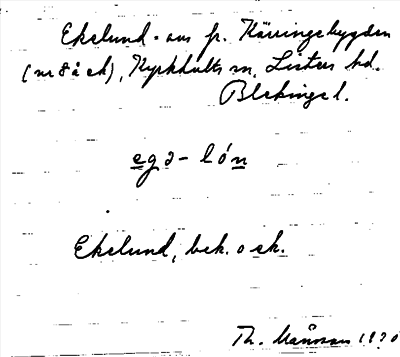 Ekelund. avs fr. Käringebygden
(nr 8 å ek), Kyrkhults sn, Listers hd.
Blekinge l.
egə-lón
Ekelund, bek. o ek.
Th. Månsson 1930